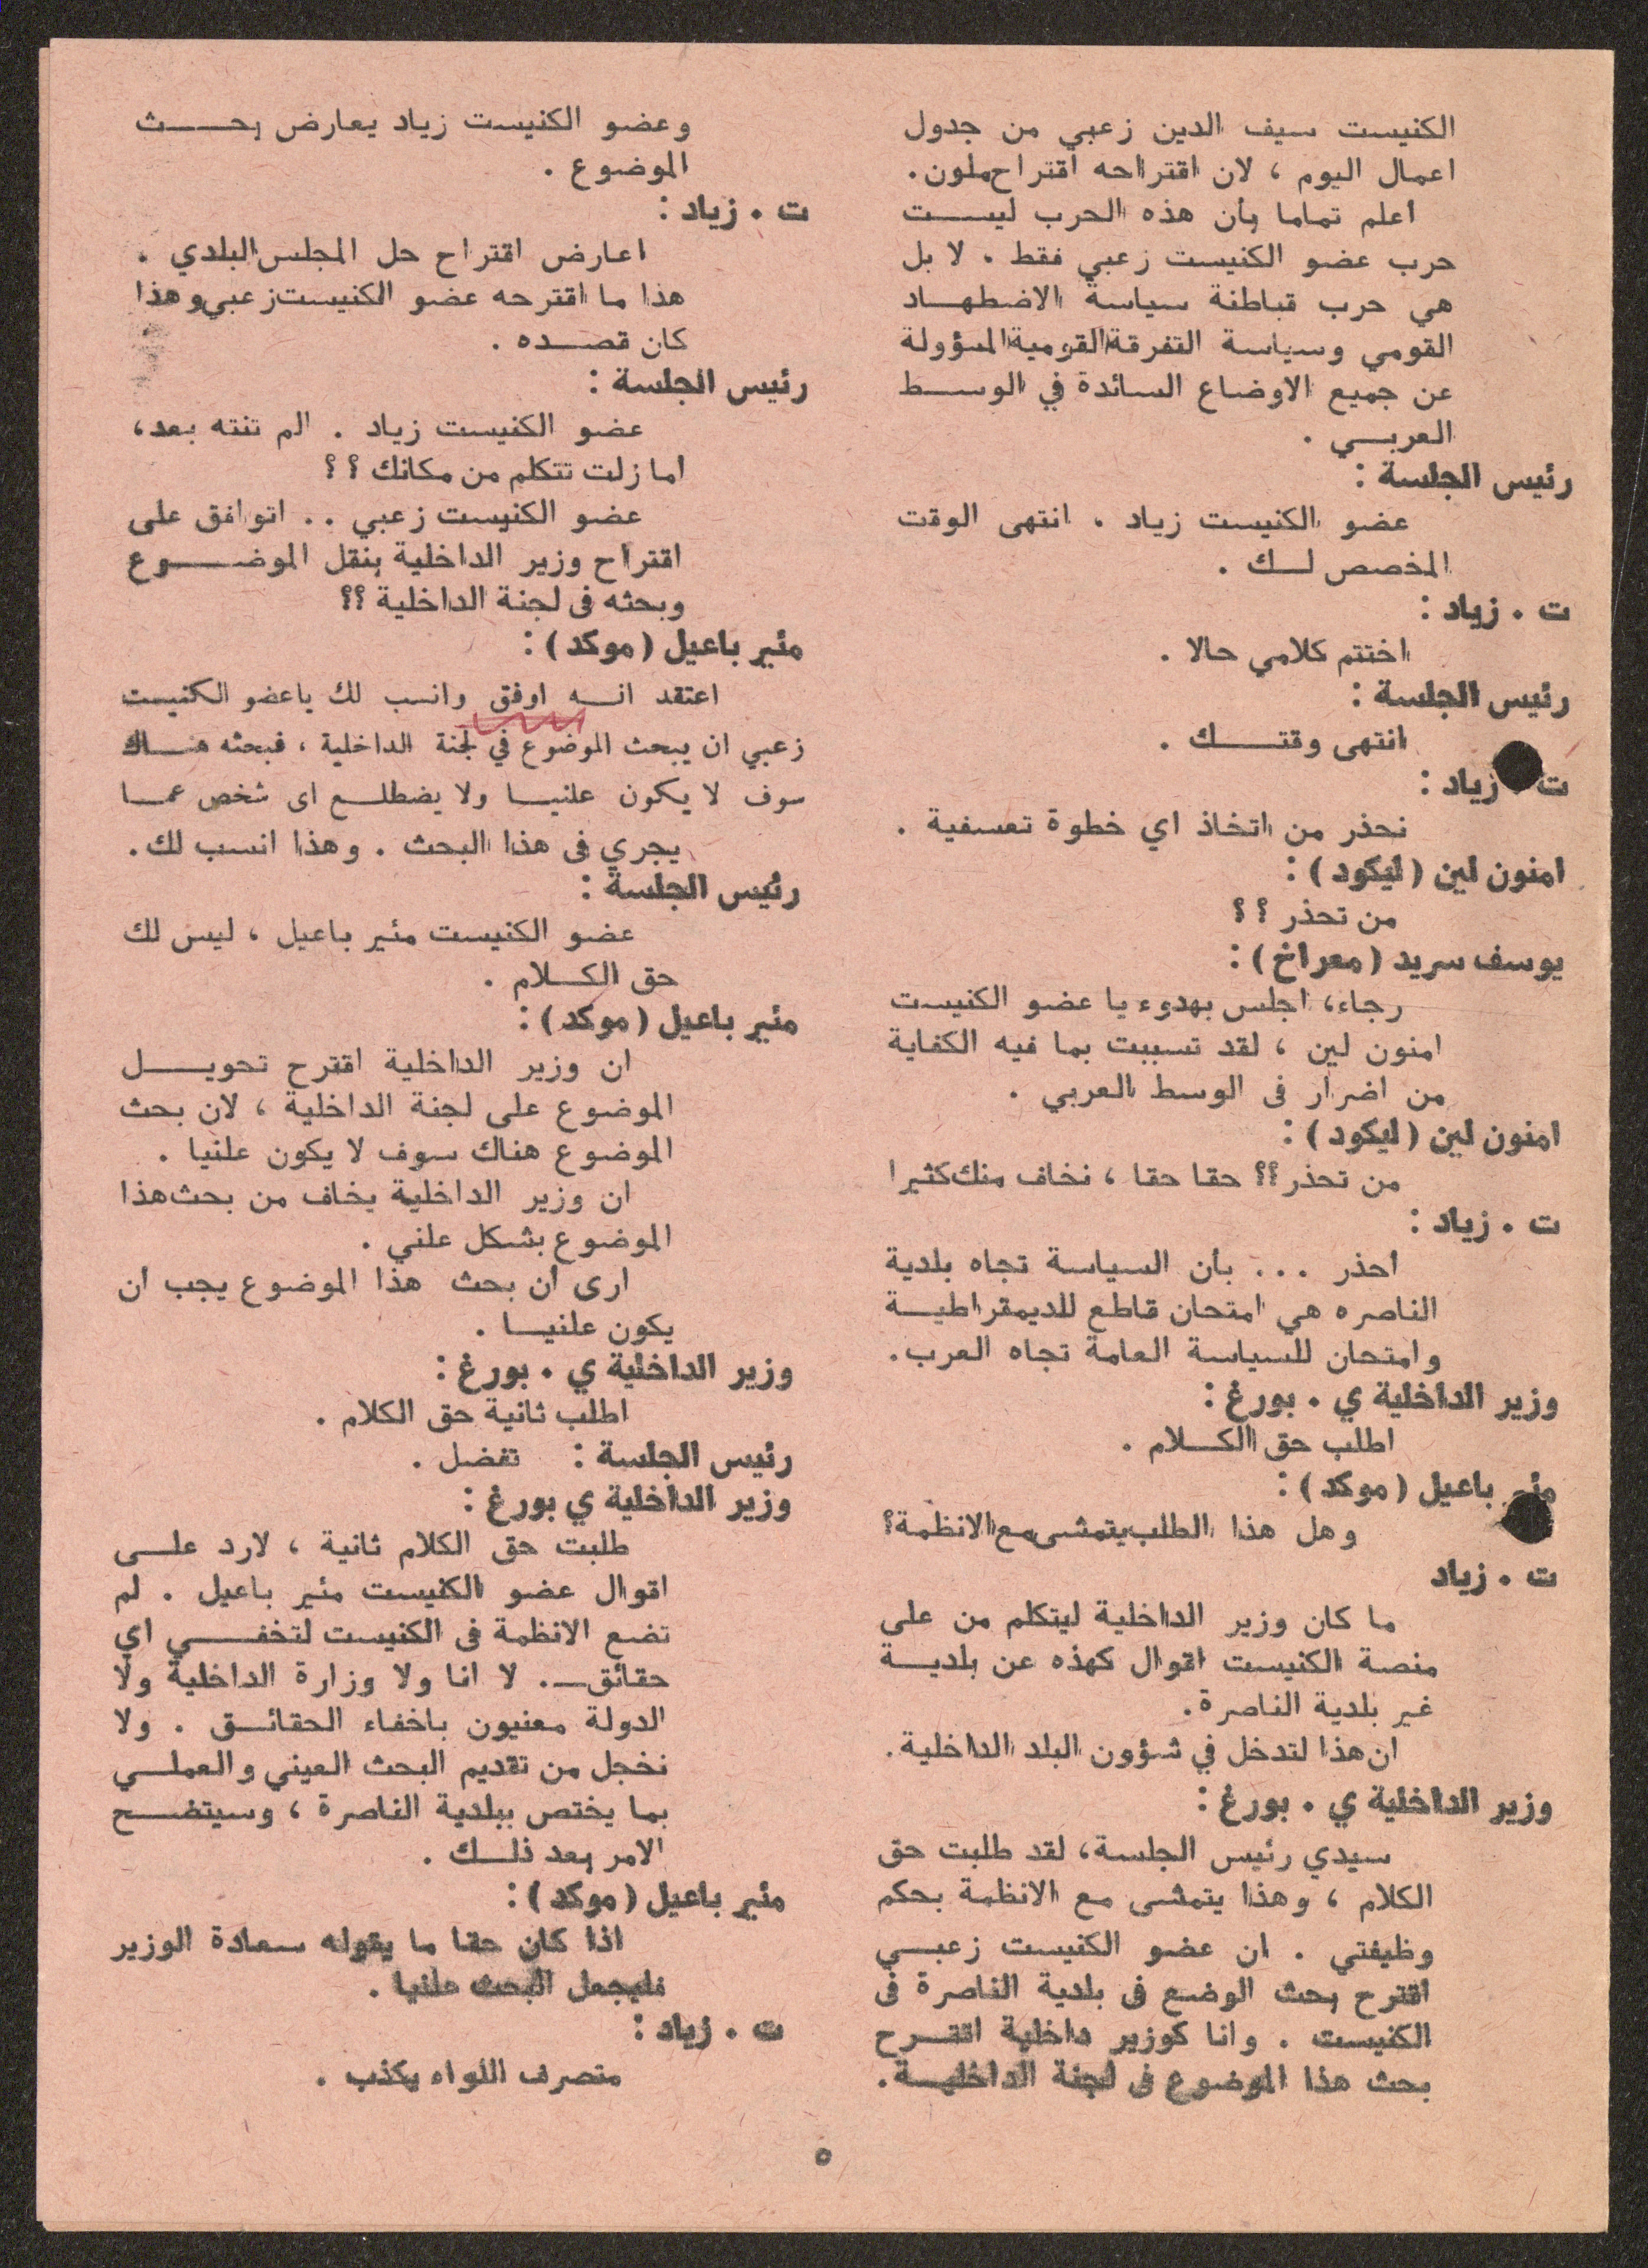 الكنيست سيف الدين زعبي من جدول
اعمال اليوم ، لان اقتراحه اقتراح ملون.
أعلم تماما بأن هذه الحرب ليست
حرب عضو الكنيست زعبي فقط . لا بل
هي حرب قباطنة سياسة الاضطهاد
القومي وسياسة التفرقة القومية المسؤولة
عن جميع الاوضاع السائدة في الوسط
العربي .
رئيس الجلسة :
عضو الكنيست زياد . انتهى الوقت
المخصص لك .
ت . زياد :
اختتم كلامي حالا .
رئيس الجلسة :
انتهى وقتك .
ت . زياد :
نحذر من اتخاذ اي خطوة تعسفية .
امنون لين ( ليكود ) :
من تحذر ؟ ؟
يوسف سريد ( معراخ ) :
رجاء، اجلس بهدوء يا عضو الكنيست
امنون لين ، لقد تسببت بما فيه الكفاية
من اضرار فى الوسط العربي .
امنون لين ( ليكود ) :
من تحذر ؟؟ حقا حقا ، نخاف منك كثيرا
ت . زياد :
أحذر . . . بأن السياسة تجاه بلدية
الناصره هي امتحان قاطع للديمقراطية
وامتحان للسياسة العامة تجاه العرب.
وزير الداخلية ي . بورغ :
اطلب حق الكلام .
مئير باعيل ( موكد ) :
وهل هذا الطلب يتمشى مع الانظمة؟
ت . زياد
ما كان وزير الداخلية ليتكلم من على
منصة الكنيست اقوال كهذه عن بلدية
غير بلدية الناصرة.
ان هذا لتدخل في شؤون البلد الداخلية.
وزير الداخلية ي . بورغ :
سيدي رئيس الجلسة، لقد طلبت حق
الكلام ، وهذا يتمشى مع الانظمة بحكم
وظيفتي . ان عضو الكنيست زعبي
اقترح بحث الوضع فى بلدية الناصرة فى
الكنيست . وانا كوزير داخلية اقترح
بحث هذا الموضوع فى لجنة الداخلية.
وعضو الكنيست زياد يعارض بحث
الموضوع .
ت . زياد :
اعارض اقتراح حل المجلس البلدي .
هذا ما اقترحه عضو الكنيست زعبي وهذا
كان قصده .
رئيس الجلسة :
عضو الكنيست زياد . الم تنته بعد،
أما زلت تتكلم من مكانك ؟ ؟
عضو الكنيست زعبي . . اتوافق على
اقتراح وزير الداخلية بنقل الموضوع
وبحثه فى لجنة الداخلية ؟؟
مئير باعيل ( موكد ) :
اعتقد انه اوفق وانسب لك ياعضو الكنيست
زعبي ان يبحث الموضوع في لجنة الداخلية ، فبحثه هناك
سوف لا يكون علنيا ولا يضطلع اى شخص عما
يجري فى هذا البحث . وهذا انسب لك.
رئيس الجلسة :
عضو الكنيست مئير باعيل ، ليس لك
حق الكلام .
مئير باعيل ( موكد ) :
ان وزير الداخلية اقترح تحويل
الموضوع على لجنة الداخلية ، لان بحث
الموضوع هناك سوف لا يكون علنيا .
ان وزير الداخلية يخاف من بحث هذا
الموضوع بشكل علني .
ارى أن بحث هذا الموضوع يجب أن
يكون علنيا .
وزير الداخلية ي . بورغ :
اطلب ثانية حق الكلام .
رئيس الجلسة : تفضل .
وزير الداخلية ي بورغ :
طلبت حق الكلام ثانية ، لارد على
اقوال عضو الكنيست مئير باعيل . لم
تضع الانظمة فى الكنيست لتخفي اي
حقائق . لا انا ولا وزارة الداخلية ولا
الدولة معنيون باخفاء الحقائق . ولا
نخجل من تقديم البحث العيني والعملي
بما يختص ببلدية الناصرة ، وسيتضح
الامر بعد ذلك .
مئير باعيل ( موكد ) :
اذا كان حقا ما يقوله سعادة الوزير
فليجعل البحث علنيا .
ت . زياد :
متصرف اللواء يكذب .
٥